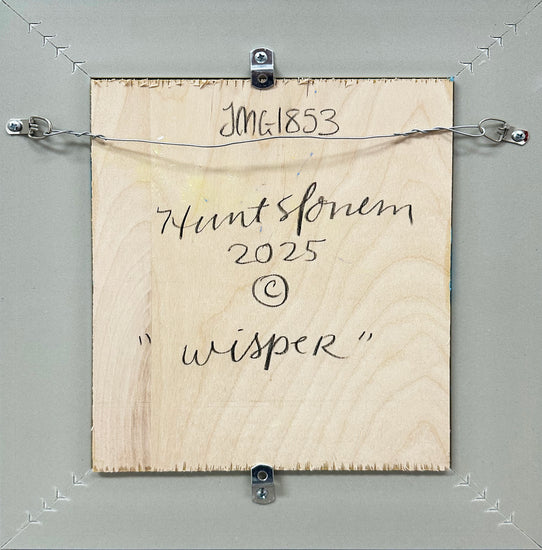 JMG1853
Hunt Slonem
2025
©
"wisper"